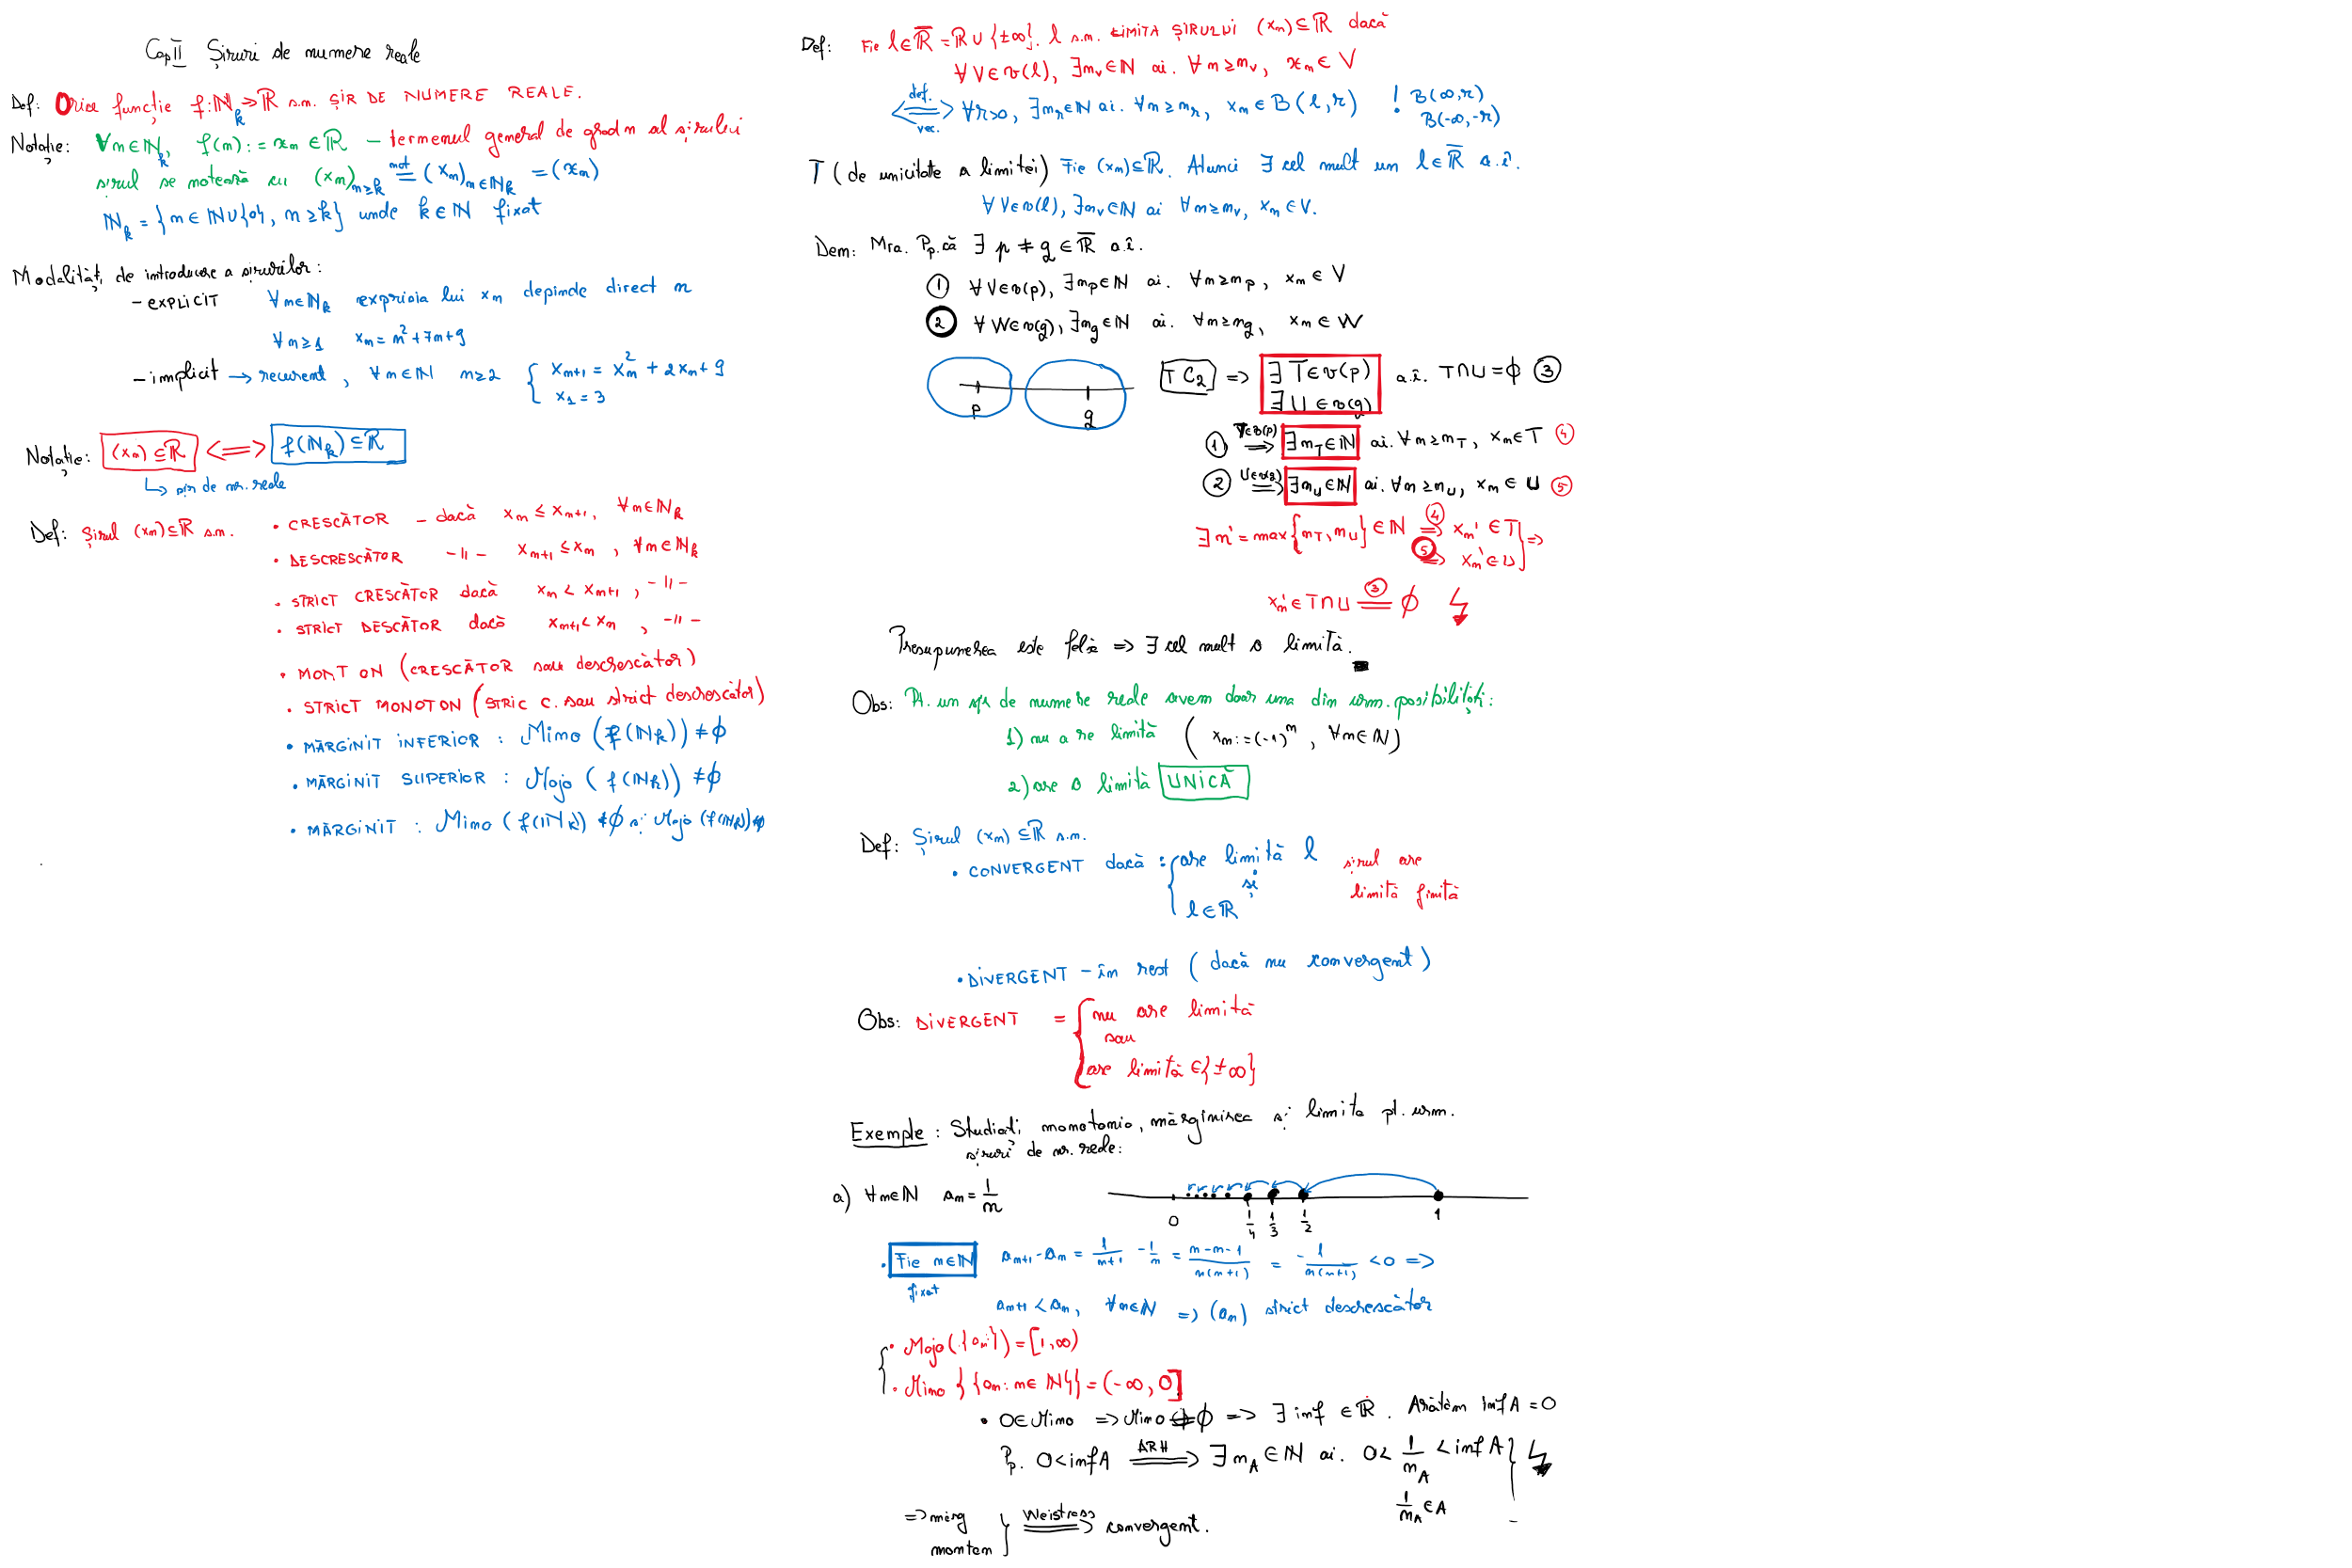 Cap II Șiruri de numere reale
Def: Orice funcție f: ℕ_k → ℝ s.m. ȘIR DE NUMERE REALE.
Notație: ∀ n∈ℕ_k, f(n) := x_n ∈ ℝ – termenul general de grad n al șirului
șirul se notează cu (x_n)_{n≥k} =^{not} (x_n)_{n∈ℕ_k} = (x_n)
ℕ_k = {n ∈ ℕ∪{0}, n ≥ k} unde k∈ℕ fixat
Modalităț, de introducere a șirurilor:
– EXPLICIT ∀n∈ℕ_k expresia lui x_n depinde direct n
∀n≥1 x_n = n² + 7n + 9
– implicit → recurent, ∀n∈ℕ n≥2 { x_{n+1} = x_n² + 2x_n + 9
x_1 = 3
Notație: (x_n) ⊆ ℝ <=> f(ℕ_k) ⊆ ℝ
↳ șir de nr. reale
Def: Șirul (x_n)⊆ℝ s.m.
• CRESCĂTOR – dacă x_n ≤ x_{n+1}, ∀n∈ℕ_k
• DESCRESCĂTOR –11– x_{n+1} ≤ x_n, ∀n∈ℕ_k
• STRICT CRESCĂTOR dacă x_n < x_{n+1}, –11–
• STRICT DESCĂTOR dacă x_{n+1} < x_n, –11–
• MONTON (CRESCĂTOR sau descrescător)
• STRICT MONOTON (STRIC C. sau strict descrescător)
• MĂRGINIT INFERIOR : Mino (f(ℕ_k)) ≠ ∅
• MĂRGINIT SUPERIOR : Majo (f(ℕ_k)) ≠ ∅
• MĂRGINIT : Mino (f(ℕ_k)) ≠ ∅ și Majo (f(ℕ_k)) ≠ ∅
Def: Fie l∈ℝ̄ = ℝ∪{±∞}. l s.m. LIMITA ȘIRULUI (x_n)⊆ℝ dacă
∀V∈𝒱(l), ∃n_V∈ℕ aî. ∀n≥n_V, x_n∈V
<=>^{def.}_{vec.} ∀r>0, ∃n_r∈ℕ aî. ∀n≥n_r, x_n∈B(l,r) ! B(∞,r)
B(-∞,-r)
T (de unicitate a limitei) Fie (x_n)⊆ℝ. Atunci ∃ cel mult un l∈ℝ̄ a.î.
∀V∈𝒱(l), ∃n_V∈ℕ aî ∀n≥n_V, x_n∈V.
Dem: Mra. Pp. că ∃ p ≠ q ∈ ℝ̄ a.î.
① ∀V∈𝒱(p), ∃n_p∈ℕ aî. ∀n≥n_p, x_n∈V
② ∀W∈𝒱(q), ∃n_q∈ℕ aî. ∀n≥n_q, x_n∈W
p q
TC₂ => ∃T∈𝒱(p) a.î. T∩U=∅ ③
∃U∈𝒱(q)
① =>^{T∈𝒱(p)} ∃n_T∈ℕ aî. ∀n≥n_T, x_n∈T ④
② =>^{U∈𝒱(q)} ∃n_U∈ℕ aî. ∀n≥n_U, x_n∈U ⑤
∃n' = max{n_T, n_U}∈ℕ =>^④ x_{n'}∈T ] =>
=>^⑤ x_{n'}∈U
x_{n'}∈T∩U =^③ ∅ ↯
Presupunerea este falsă => ∃ cel mult o limită.
Obs: Pt. un șir de numere reale avem doar una din urm. posibilități:
1) nu are limită ( x_n := (-1)^n, ∀n∈ℕ)
2) are o limită UNICĂ
Def: Șirul (x_n)⊆ℝ s.m.
• CONVERGENT dacă : { are limită l șirul are
și limită finită
l∈ℝ
• DIVERGENT – în rest (dacă nu convergent)
Obs: DIVERGENT = { nu are limită
sau
are limită ∈{±∞}
Exemple: Studiați monotonia, mărginirea și limita pt. urm.
șiruri de nr. reale:
a) ∀n∈ℕ a_n = 1/n 0 1/4 1/3 1/2 1
• Fie n∈ℕ a_{n+1} - a_n = 1/(n+1) - 1/n = (n-n-1)/(n(n+1)) = -1/(n(n+1)) < 0 =>
fixat
a_{n+1} < a_n, ∀n∈ℕ => (a_n) strict descrescător
• Majo({a_n:}) = [1,∞)
• Mino {{a_n : n∈ℕ}} = (-∞,0]
• 0∈Mino => Mino ≠ ∅ => ∃ inf ∈ℝ. Arătăm inf A = 0
Pp. 0<inf A =>^{ARH} ∃n_A∈ℕ aî. 0 < 1/n_A < inf A } ↯
1/n_A ∈ A
=> mărg
monton } =>^{Weistrass} convergent.